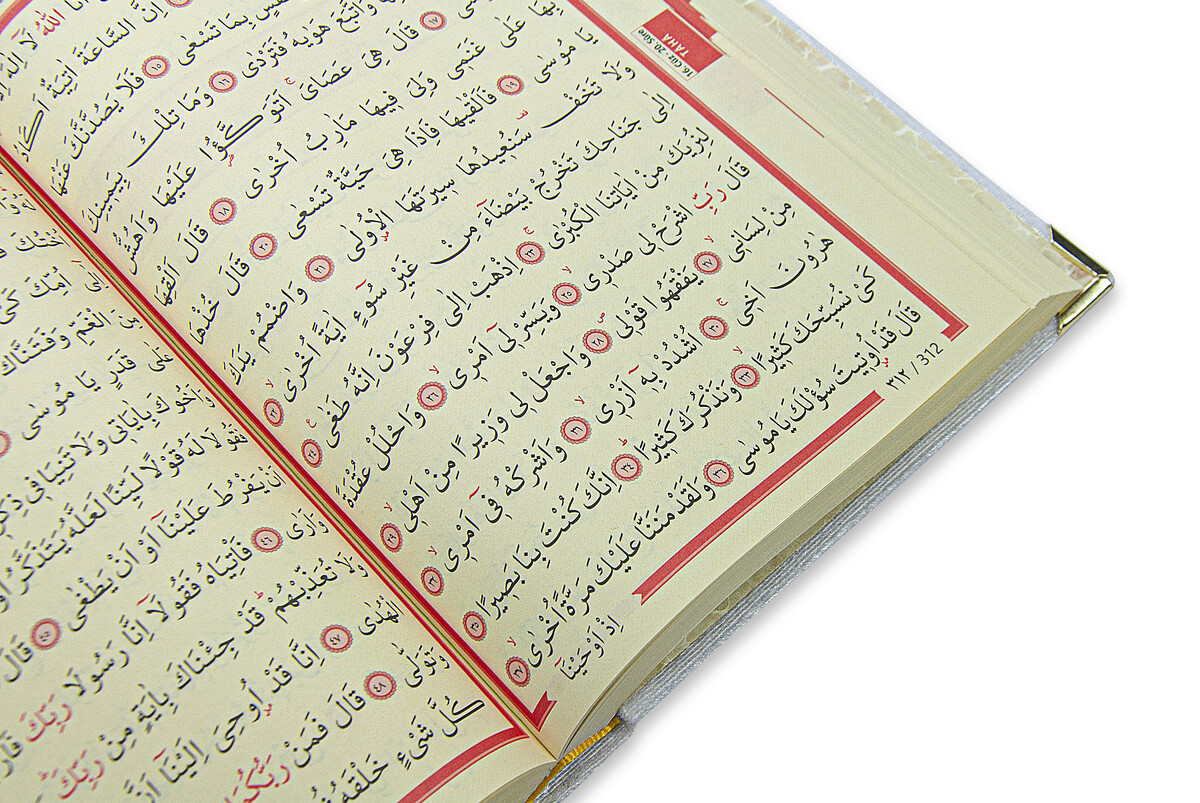 TAHA
16.Cüz - 20. Sûre
اَنَا اللّٰهُ لَٓا اِلٰهَ
اِنَّ السَّاعَةَ اٰتِيَةٌ اَكَادُ
بِمَا تَسْعٰى ﴿١٥﴾ فَلَا يَصُدَّنَّكَ عَنْهَا
وَاتَّبَعَ هَوٰيهُ فَتَرْدٰى ﴿١٦﴾ وَمَا تِلْكَ بِيَمِينِكَ
﴿١٧﴾ قَالَ هِيَ عَصَايَ اَتَوَكَّؤُا عَلَيْهَا وَاَهُشُّ
بِهَا عَلٰى غَنَمِى وَلِىَ فِيهَا مَاٰرِبُ اُخْرٰى ﴿١٨﴾ قَالَ اَلْقِهَا
يَا مُوسٰى ﴿١٩﴾ فَاَلْقٰيهَا فَاِذَا هِىَ حَيَّةٌ تَسْعٰى ﴿٢٠﴾ قَالَ خُذْهَا
وَلَا تَخَفْ سَنُعِيدُهَا سِيرَتَهَا الْاُو۫لٰى ﴿٢١﴾ وَاضْمُمْ يَدَكَ
اِلٰى جَنَاحِكَ تَخْرُجْ بَيْضَٓاءَ مِنْ غَيْرِ سُٓوءٍ اٰيَةً اُخْرٰى ﴿٢٢﴾
لِنُرِيَكَ مِنْ اٰيَاتِنَا الْكُبْرٰى ﴿٢٣﴾ اِذْهَبْ اِلٰى فِرْعَوْنَ اِنَّهُ طَغٰى ﴿٢٤﴾
قَالَ رَبِّ اشْرَحْ لِى صَدْرِى ﴿٢٥﴾ وَيَسِّرْ لِٓى اَمْرِى ﴿٢٦﴾ وَاحْلُلْ عُقْدَةً
مِنْ لِسَانِى ﴿٢٧﴾ يَفْقَهُوا قَوْلِى ﴿٢٨﴾ وَاجْعَلْ لِى وَزِيرًا مِنْ اَهْلِى ﴿٢٩﴾
هٰرُونَ اَخِى ﴿٣٠﴾ اُشْدُدْ بِهِٓ اَزْرِى ﴿٣١﴾ وَاَشْرِكْهُ فِٓى اَمْرِى ﴿٣٢﴾
كَىْ نُسَبِّحَكَ كَثِيرًا ﴿٣٣﴾ وَنَذْكُرَكَ كَثِيرًا ﴿٣٤﴾ اِنَّكَ كُنْتَ بِنَا بَصِيرًا ﴿٣٥﴾
قَالَ قَدْ اُو۫تِيتَ سُؤْلَكَ يَا مُوسٰى ﴿٣٦﴾ وَلَقَدْ مَنَنَّا عَلَيْكَ مَرَّةً اُخْرٰى ﴿٣٧﴾
اِذْ اَوْحَيْنَٓا
٣١٢ / 312
اُخْتُكَ
اِلٰٓى اُمِّكَ كَىْ
مِنَ الْغَمِّ وَفَتَنَّاكَ
عَلٰى قَدَرٍ يَا مُوسٰى
وَاَخُوكَ بِاٰيَاتِى وَلَا تَنِيَا فِى
فَقُولَا لَهُ قَوْلًا لَيِّنًا لَعَلَّهُ يَتَذَكَّرُ اَوْ
اَنْ يَفْرُطَ عَلَيْنَٓا اَوْ اَنْ يَطْغٰى ﴿٤٥﴾ قَالَ
وَاَرٰى ﴿٤٦﴾ فَأْتِيَاهُ فَقُولَٓا اِنَّا رَسُولَا رَبِّكَ
وَلَا تُعَذِّبْهُمْ قَدْ جِئْنَاكَ بِاٰيَةٍ مِنْ رَبِّكَ
الْهُدٰى ﴿٤٧﴾ اِنَّا قَدْ اُو۫حِىَ اِلَيْنَٓا
وَتَوَلّٰى ﴿٤٨﴾ قَالَ فَمَنْ رَبُّكُمَا
كُلَّ شَىْءٍ خَلْقَهُ